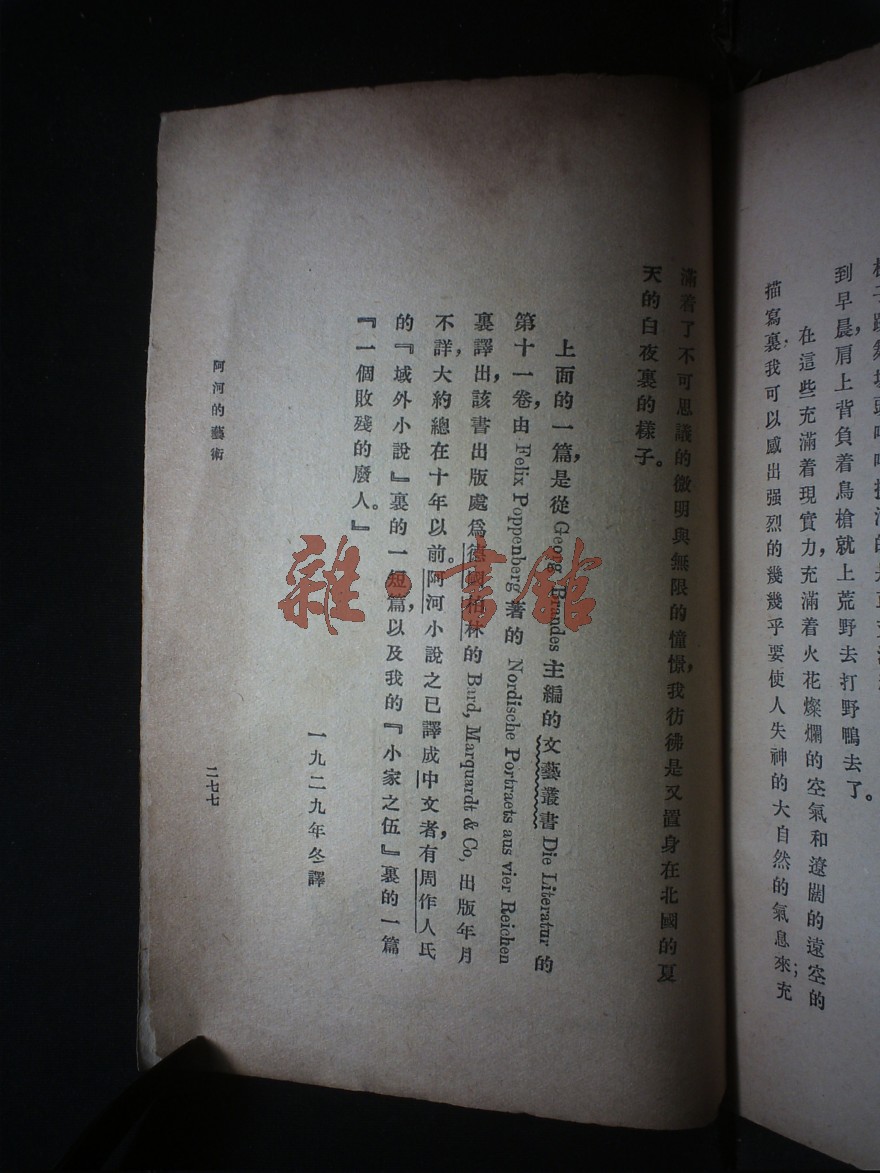 到早晨，肩上背負着鳥槍就上荒野去打野鴨去了。
在這些充滿着現實力，充滿着火花燦爛的空氣和遼闊的遠空的
描寫裏，我可以感出强烈的幾幾乎要使人失神的大自然的氣息來；充
滿着了不可思議的微明與無限的憧憬，我彷彿是又置身在北國的夏
天的白夜裏的樣子。
上面的一篇，是從 Georg Brandes 主編的文藝叢書 Die Literatur 的
第十一卷，由 Felix Poppenberg 著的 Nordische Portraets aus vier Reichen
裏譯出，該書出版處爲德國柏林的 Bard, Marquardt & Co, 出版年月
不詳，大約總在十年以前。阿河小說之已譯成中文者，有周作人氏
的『域外小說』裏的一短篇，以及我的『小家之伍』裏的一篇
『一個敗殘的廢人。』
一九二九年冬譯
阿河的藝術
二七七
雜·書館